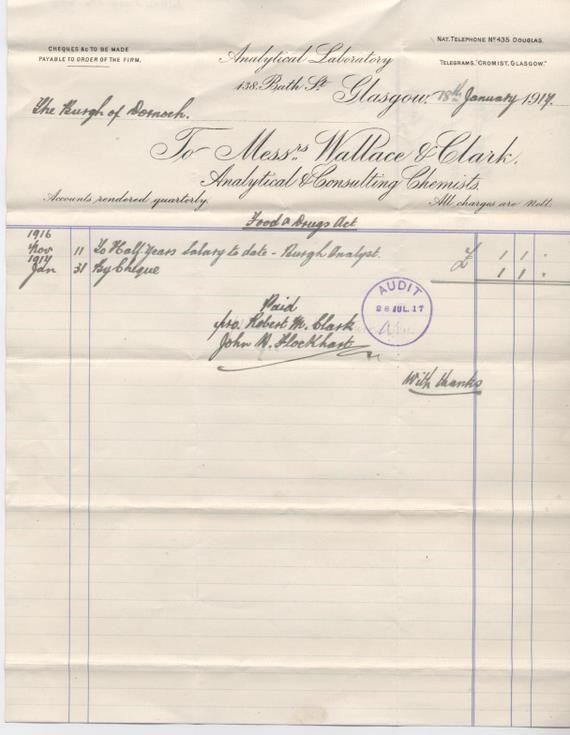 CHEQUES &C TO BE MADE
PAYABLE TO ORDER OF THE FIRM.
NAT. TELEPHONE Nº 435 DOUGLAS.
TELEGRAMS, "CROMIST, GLASGOW."
Analytical Laboratory
138, Bath St
Glasgow, 18th January 1917.
The Burgh of Dornoch.
To Messrs Wallace & Clark,
Analytical & Consulting Chemists.
Accounts rendered quarterly.
All charges are Nett.
Food & Drugs Act
1916
Nov 11 To Half Years Salary to date - Burgh Analyst. £ 1 1 -
1917
Jan 31 By Cheque 1 1 -
Paid
pro. Robert M. Clark
John W. Flockhart
AUDIT
28 JUL. 17
With thanks